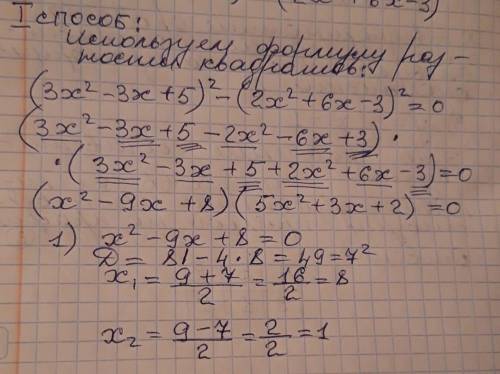 (2x² + 6x - 3)
I способ:
Используем формулу раз-
ности квадратов:
(3x² - 3x + 5)² - (2x² + 6x - 3)² = 0
(3x² - 3x + 5 - 2x² - 6x + 3) ·
· (3x² - 3x + 5 + 2x² + 6x - 3) = 0
(x² - 9x + 8)(5x² + 3x + 2) = 0
1) x² - 9x + 8 = 0
D = 81 - 4 · 8 = 49 = 7²
x₁ = (9 + 7)/2 = 16/2 = 8
x₂ = (9 - 7)/2 = 2/2 = 1